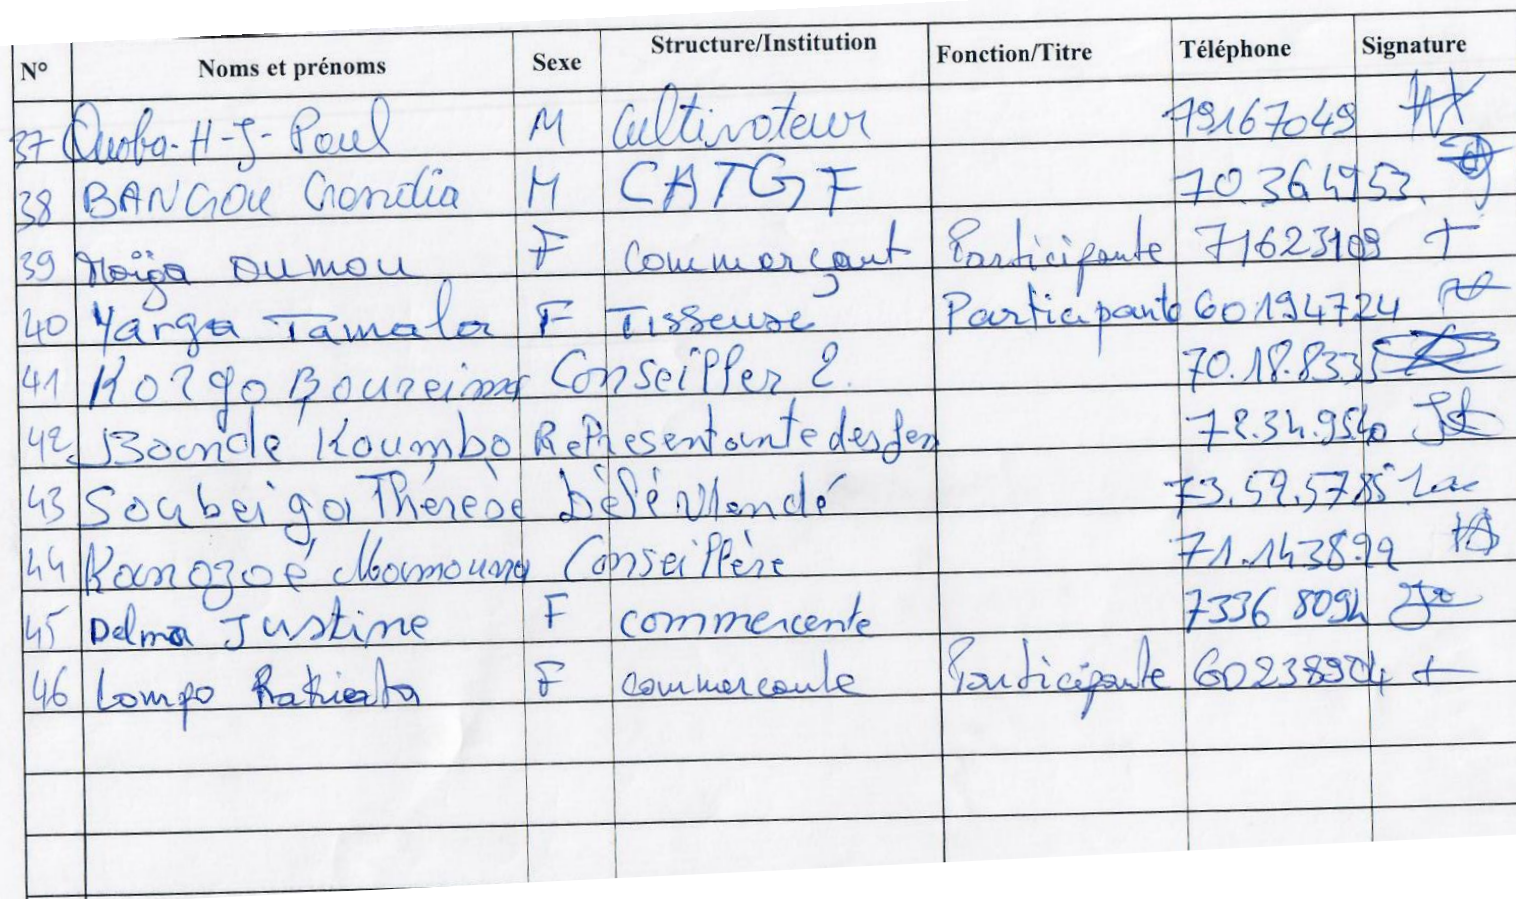 N° Noms et prénoms Sexe Structure/Institution Fonction/Titre Téléphone Signature
37 Ouoba-H-J-Paul M Cultivateur 79167049
38 BANGOU M CATGF 70.364953.
39 Maïga oumou F commerçant Participante 71623109 +
40 Yarga Tamala F Tisseuse Participante 60194724
41 Korgo Boureima Conseiller 2. 70.18.8335
42 Bandé Koumbo Representante des fem 72.34.9540
43 Soubeiga Thérèse Délé 73.59.5785
44 Kanozoé Mamouna Conseillère 71.143899
45 Delma Justine F commercente 7336 8094
46 Lompo Rakieta F commercante Participante 60238904 +